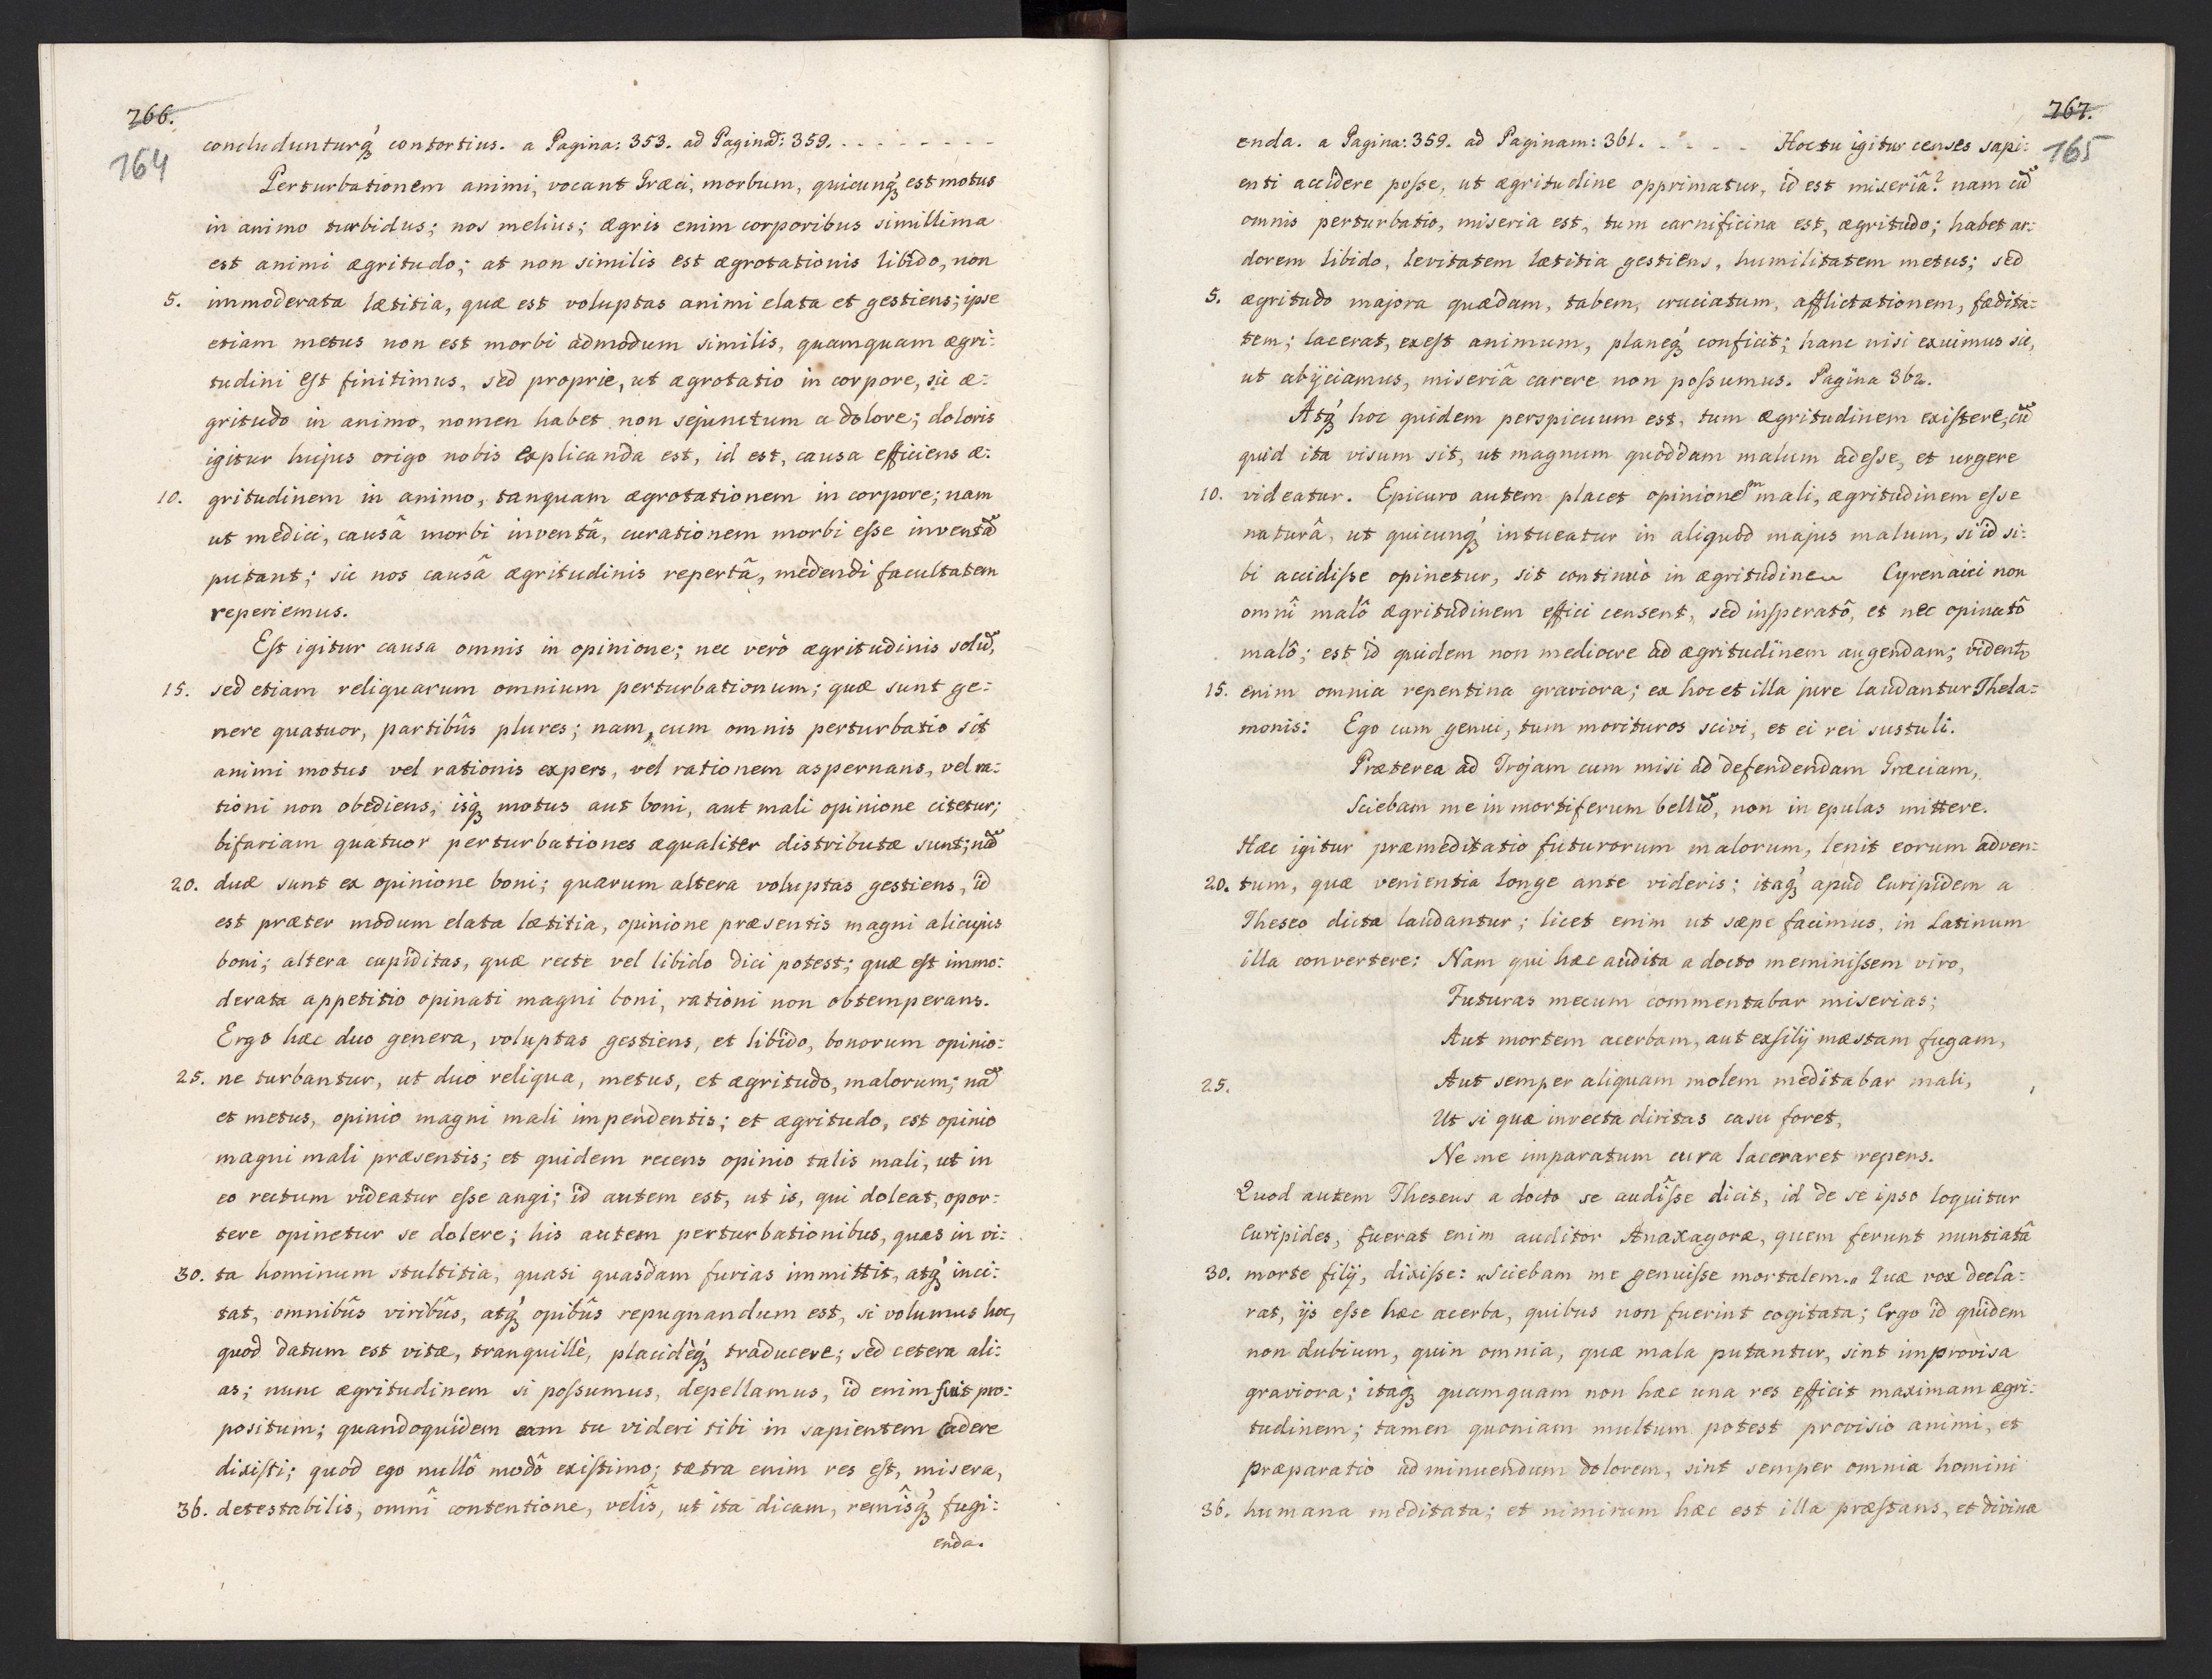 266.
164
concludunturq́ꝫ contortius. a Pagina: 353. ad Paginad̃: 359. - - - - - - - -
Perturbationem animi, vocant Græci, morbum, quicunq́ꝫ est motus
in animo turbidus; nos melius; ægris enim corporibus simillima
est animi ægritudo; at non similis est ægrotationis libido, non
5. immoderata lætitia, quæ est voluptas animi elata et gestiens; ipse
etiam metus non est morbi admodum similis, quamquam ægri:
tudini est finitimus, sed proprie, ut ægrotatio in corpore, sic æ:
gritudo in animo, nomen habet non sejunctum a dolore; doloris
igitur hujus origo nobis explicanda est, id est, causa efficiens æ:
10. gritudinem in animo, tanquam ægrotationem in corpore; nam
ut medici, causâ morbi inventâ, curationem morbi esse inventã
putant; sic nos causâ ægritudinis repertâ, medendi facultatem
reperiemus.
Est igitur causa omnis in opinione; nec verò ægritudinis solũ,
15. sed etiam reliquarum omnium perturbationum; quæ sunt ge:
nere quatuor, partibûs plures; nam, cum omnis perturbatio sit
animi motus vel rationis expers, vel rationem aspernans, vel ra:
tioni non obediens, isq́ꝫ motus aut boni, aut mali opinione citetur;
bifariam quatuor perturbationes æqualiter distributæ sunt; nã
20. duæ sunt ex opinione boni; quarum altera voluptas gestiens, id
est præter modum elata lætitia, opinione præsentis magni alicujus
boni; altera cupiditas, quæ recte vel libido dici potest; quæ est immo:
derata appetitio opinati magni boni, rationi non obtemperans.
Ergo hæc duo genera, voluptas gestiens, et libido, bonorum opinio:
25. ne turbantur, ut duo reliqua, metus, et ægritudo, malorum; nã
et metus, opinio magni mali impendentis; et ægritudo, est opinio
magni mali præsentis; et quidem recens opinio talis mali, ut in
eo rectum videatur esse angi; id autem est, ut is, qui doleat, opor:
tere opinetur se dolere; his autem perturbationibus, quas in vi:
30. ta hominum stultitia, quasi quasdam furias immittit, atq́ꝫ inci:
tat, omnibûs viribûs, atq́ꝫ opibûs repugnandum est, si volumus hoc,
quod datum est vitæ, tranquillè, placidèq́ꝫ traducere; sed cetera ali:
as; nunc ægritudinem si possumus, depellamus, id enim fuit pro:
positum; quandoquidem eam tu videri tibi in sapientem cadere
dixisti; quod ego nullô modô existimo; tætra enim res est, misera,
36. detestabilis, omnî contentione, velîs, ut ita dicam, remîsq́ꝫ fugi:
enda.
267.
165
enda. a Pagina: 359. ad Paginam: 361. - - - - - Hoc tu igitur censes sapi:
enti accidere posse, ut ægritudine opprimatur, id est miseriâ? nam cũ
omnis perturbatio, miseria est, tum carnificina est, ægritudo; habet ar:
dorem libido, levitatem lætitia gestiens, humilitatem metus; sed
5. ægritudo majora quædam, tabem, cruciatum, afflictationem, fædita:
tem; lacerat, exest animum, planeq́ꝫ conficit; hanc nisi exuimus sic,
ut abijciamus, miseriâ carere non possumus. Pagina 362.
Atq́ꝫ hoc quidem perspicuum est, tum ægritudinem existere, cũ
quid ita visum sit, ut magnum quoddam malum adesse, et urgere
10. videatur. Epicuro autem placet opinionem mali, ægritudinem esse
naturâ, ut quicunq́ꝫ intueatur in aliquod majus malum, si id si:
bi accidisse opinetur, sit continuò in ægritudine. Cyrenaici non
omnî malô ægritudinem effici censent, sed insperatô, et nec opinatô
malô; est id quidem non mediocre ad ægritudinem augendam; vident̃
15. enim omnia repentina graviora; ex hoc et illa jure laudantur Thela:
monis: Ego cum genui, tum morituros scivi, et ei rei sustuli.
Præterea ad Trojam cum misi ad defendendam Græciam,
Sciebam me in mortiferum bellũ, non in epulas mittere.
Hæc igitur præmeditatio futurorum malorum, lenit eorum adven:
20. tum, quæ venientia longe ante videris; itaq́ꝫ apud Euripidem a
Theseo dicta laudantur; licet enim ut sæpe facimus, in Latinum
illa convertere: Nam qui hæc audita a docto meminissem viro,
Futuras mecum commentabar miserias;
Aut mortem acerbam, aut exsilij mæstam fugam,
25. Aut semper aliquam molem meditabar mali,
Ut si qua invecta diritas casu foret,
Ne me imparatum cura laceraret repens.
Quod autem Theseus a docto se audîsse dicit, id de se ipso loquitur
Euripides, fuerat enim auditor Anaxagoræ, quem ferunt nuntiatâ
30. morte filij, dixisse: „Sciebam me genuisse mortalem.„ Quæ vox decla:
rat, ijs esse hæc acerba, quibus non fuerint cogitata; Ergo id quidem
non dubium, quin omnia, quæ mala putantur, sint improvisa
graviora; itaq́ꝫ quamquam non hæc una res efficit maximam ægri:
tudinem; tamen quoniam multum potest provisio animi, et
præparatio ad minuendum dolorem, sint semper omnia homini
36. humana meditata; et nimirum hæc est illa præstans, et divina